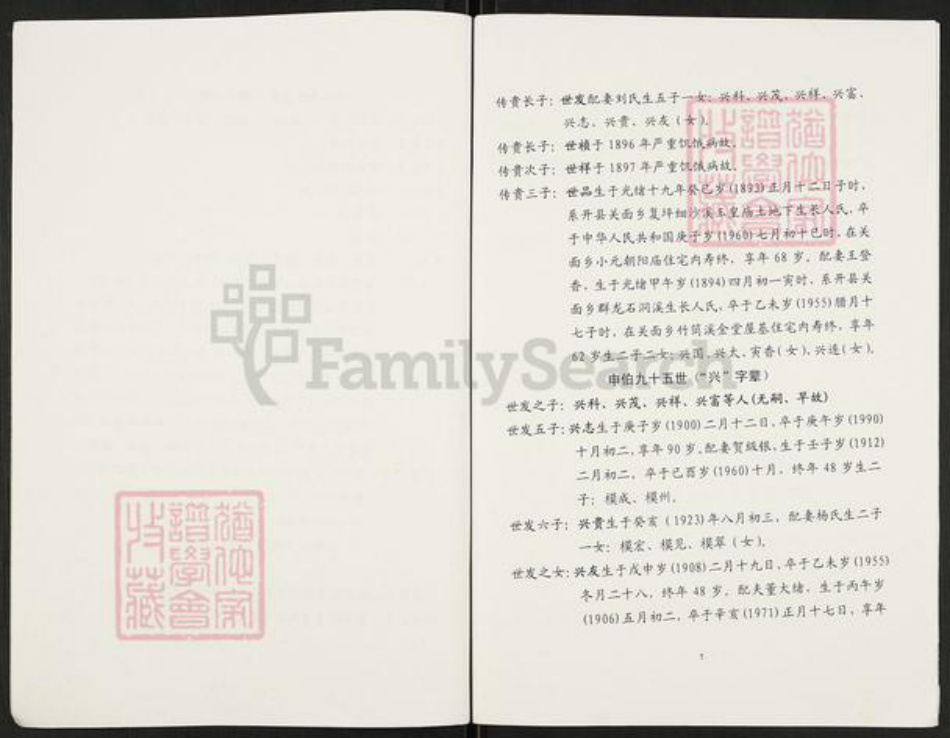 传贵长子：世发配妻刘氏生五子一女：兴科、兴茂、兴祥、兴富、
兴志、兴贵、兴友（女）。
传贵长子：世植于1896年严重饥饿病故。
传贵次子：世祥于1897年严重饥饿病故。
传贵三子：世品生于光绪十九年癸巳岁(1893)正月十二日子时，
系开县关面乡复坪细沙溪玉皇庙土地下生长人氏，卒
于中华人民共和国庚子岁(1960)七月初十巳时，在关
面乡小元朝阳庙住宅内寿终，享年68岁。配妻王登
香，生于光绪甲午岁(1894)四月初一寅时，系开县关
面乡群龙石洞溪生长人氏，卒于乙未岁(1955)腊月十
七子时，在关面乡竹筒溪金堂屋基住宅内寿终，享年
62岁生二子二女：兴国、兴太、寅香(女)、兴连(女)。
申伯九十五世（“兴”字辈）
世发之子：兴科、兴茂、兴祥、兴富等人(无嗣、早故)
世发五子：兴志生于庚子岁(1900)二月十二日，卒于庚午岁(1990)
十月初二，享年90岁。配妻贺级银，生于壬子岁(1912)
二月初二，卒于己酉岁(1960)十月，终年48岁生二
子：模成、模州。
世发六子：兴贵生于癸亥（1923)年八月初三，配妻杨氏生二子
一女：模宏、模见、模翠（女）。
世发之女：兴友生于戊申岁(1908)二月十九日，卒于乙未岁(1955)
冬月二十八，终年48岁。配夫董大绪，生于丙午岁
(1906)五月初二，卒于辛亥(1971)正月十七日，享年
FamilySearch